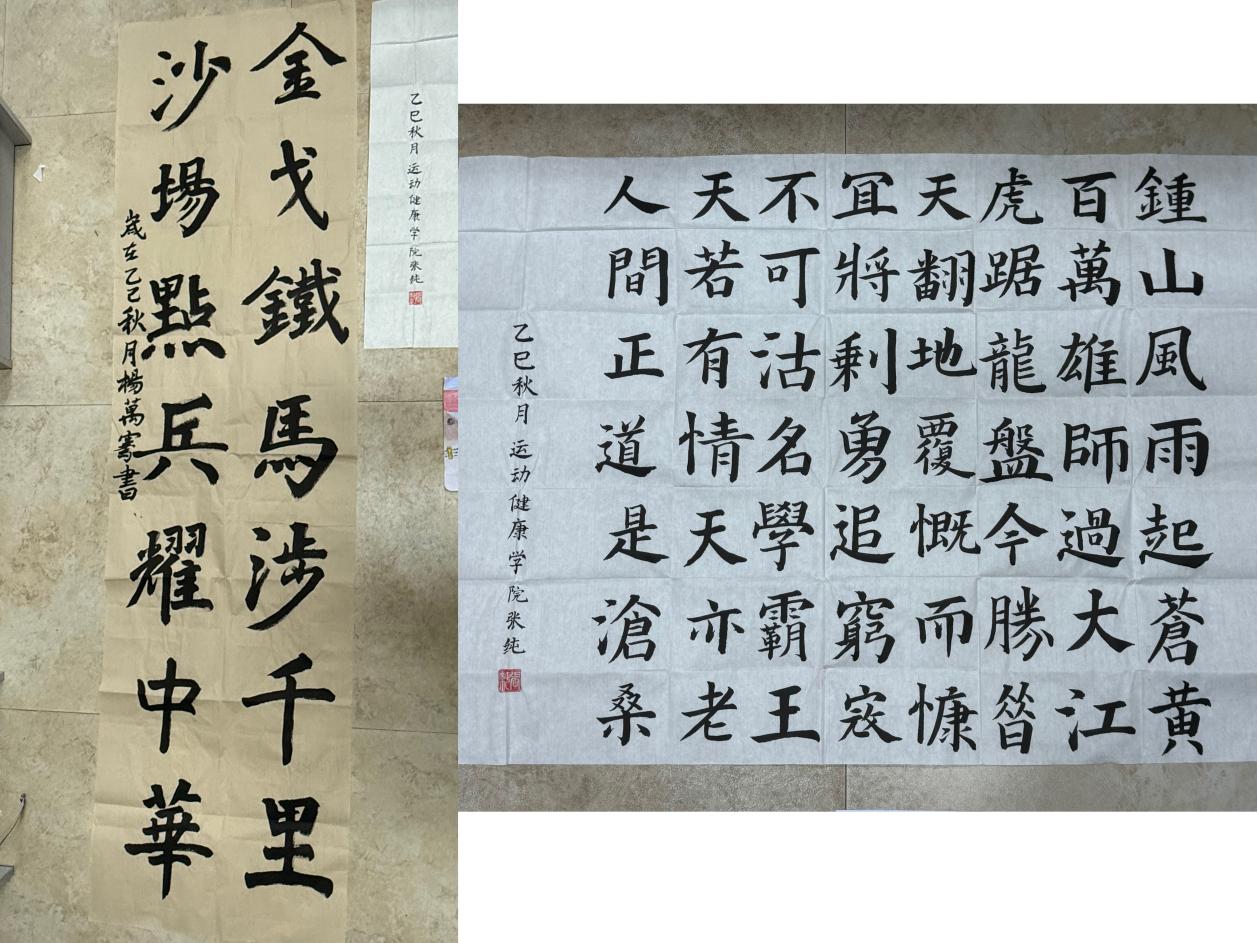 金戈鐵馬涉千里
沙場點兵耀中華
歲在乙巳秋月楊萬書
乙巳秋月 运动健康学院张纯
鍾山風雨起蒼黄
百萬雄師過大江
虎踞龍盤今勝昔
天翻地覆慨而慷
冝將剩勇追窮寇
不可沽名學霸王
天若有情天亦老
人間正道是滄桑
乙巳秋月 运动健康学院张纯